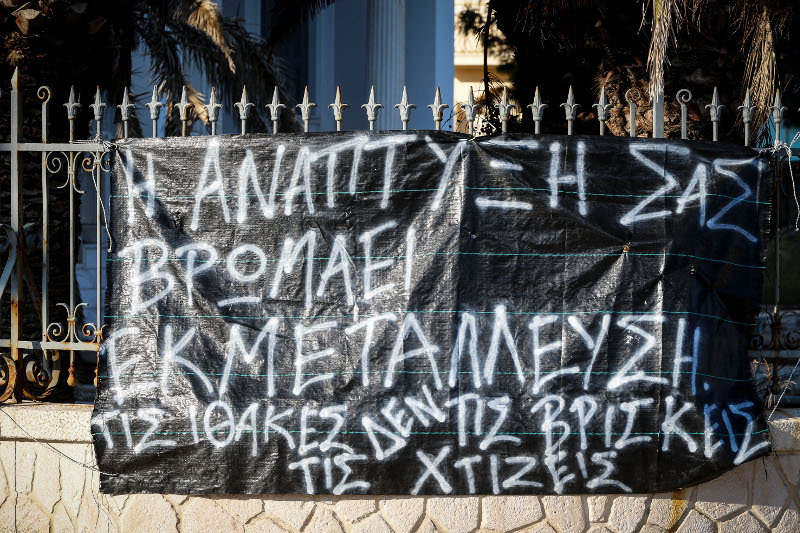 Η ΑΝΑΠΤΥΞΗ ΣΑΣ
ΒΡΩΜΑΕΙ
ΕΚΜΕΤΑΛΛΕΥΣΗ.
ΤΙΣ ΙΘΑΚΕΣ ΔΕΝ ΤΙΣ ΒΡΙΣΚΕΙΣ
ΤΙΣ ΧΤΙΖΕΙΣ